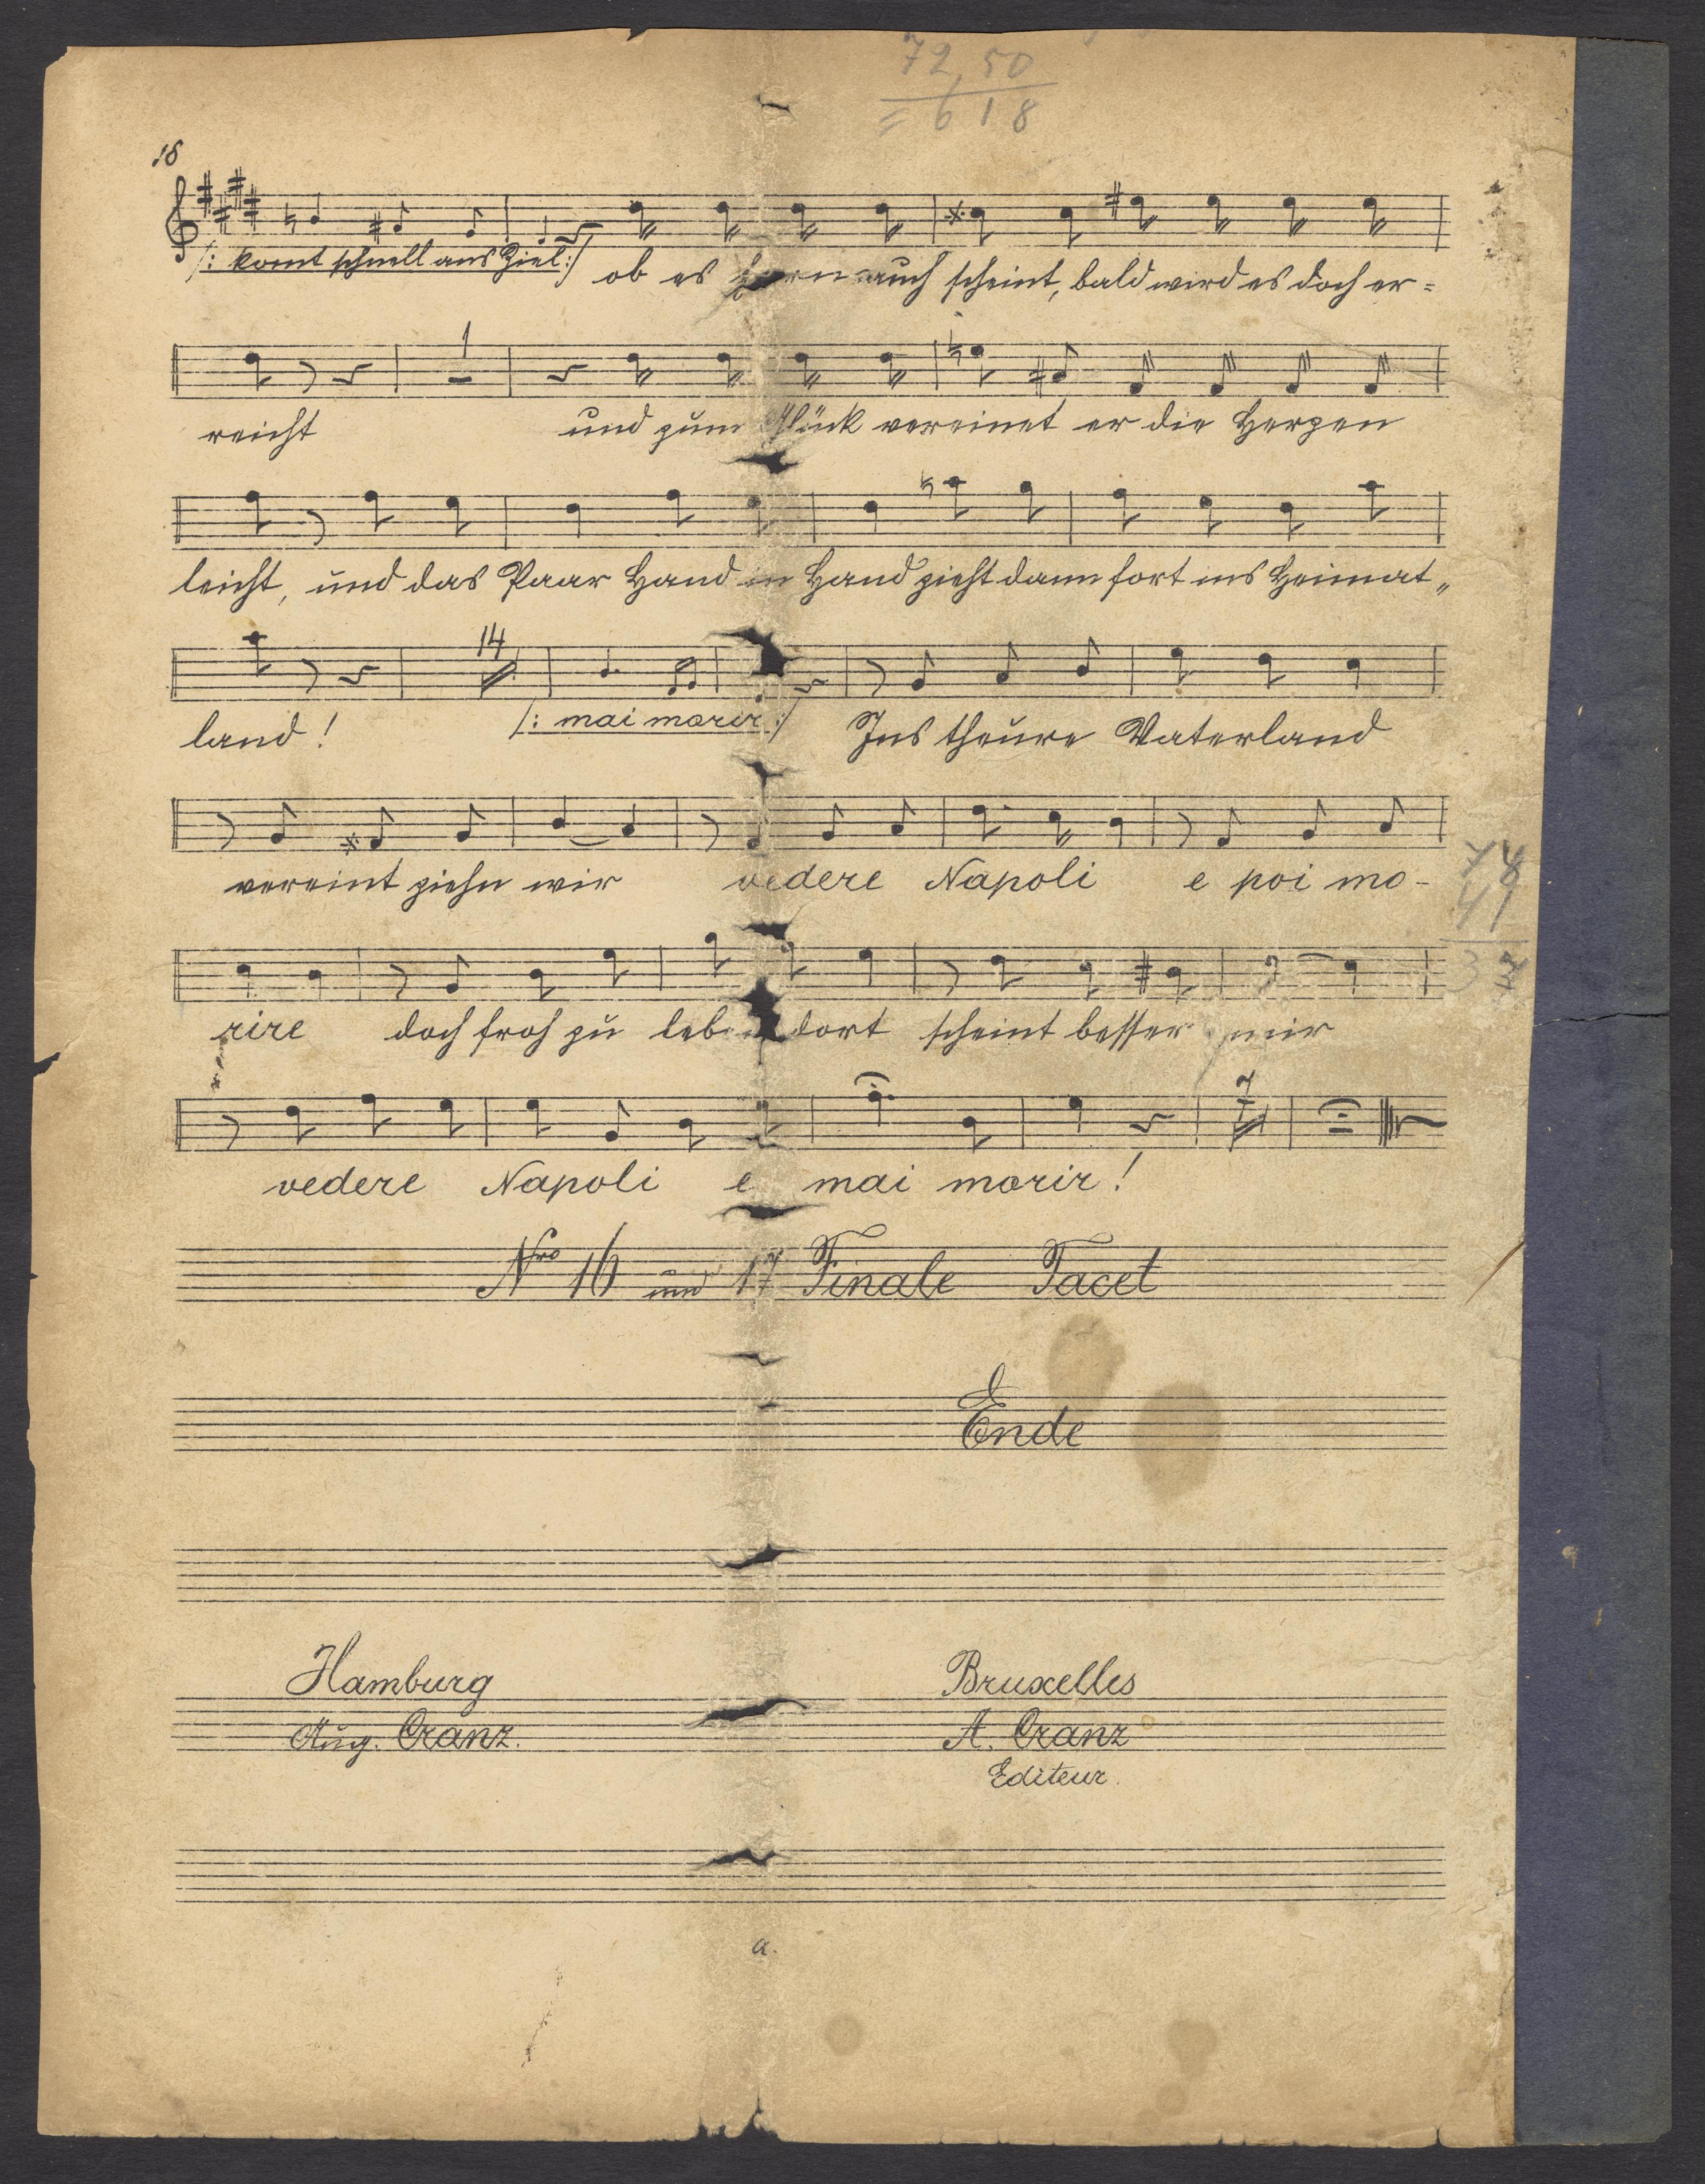 72,50
= 618
18
/: komt schnell ans Ziel :/ ob es fern auch scheint, bald wird es doch er=
1
reicht und zum Glück vereinet er die Herzen
leicht, und das Paar Hand in Hand zieht dann fort ins Heimat„
14
land! /: mai morir :/ Ins theure Vaterland
vereint ziehn wir vedere Napoli e poi mo-
74
41
33
rire doch froh zu leben dort scheint besser mir
7
vedere Napoli e mai morir!
Nro 16 und 17 Finale Tacet
Ende
Hamburg Bruxelles
Aug. Cranz. A. Cranz
Editeur.
a.